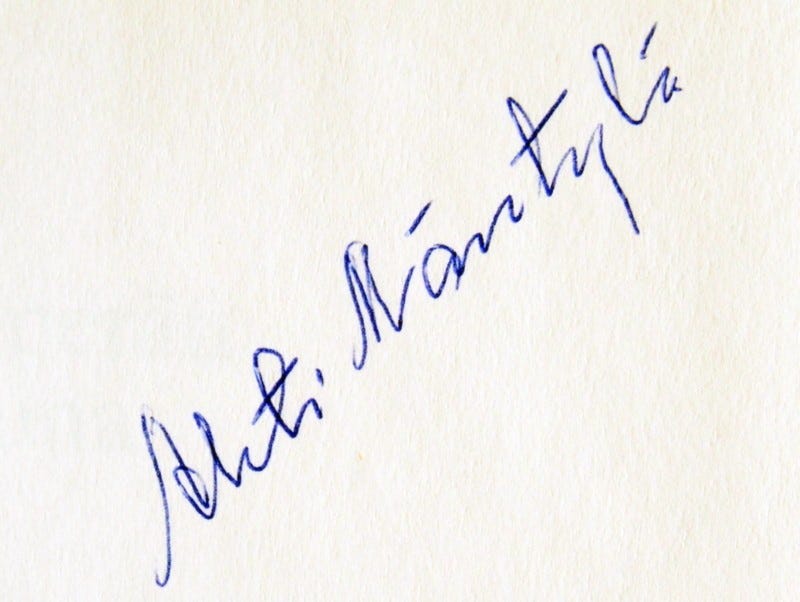 Ahti Mäntylä